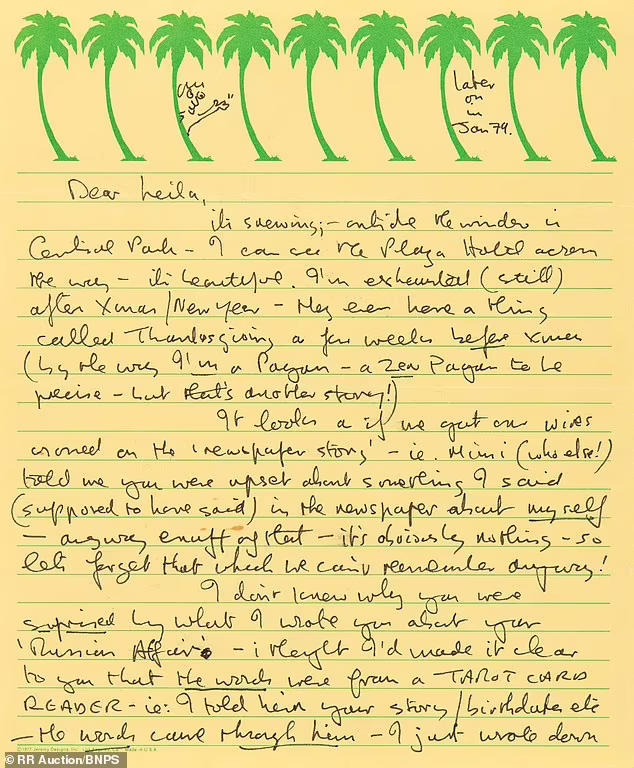 later
on
in
Jan 79.
Dear Leila,
it's snowing;- outside the window in
Central Park - I can see the Plaza Hotel across
the way - it's beautiful. I'm exhausted (still)
after Xmas/New Year - they even have a thing
called Thanksgiving a few weeks before Xmas
(by the way I'm a Pagan - a Zen Pagan to be
precise - but that's another story!)
It looks as if we got our wires
crossed on the 'newspaper story' - ie. Mimi (who else!)
told me you were upset about something I said
(supposed to have said) in the newspaper about myself
- anyway enuff of that - it's obviously nothing - so
lets forget that which we can't remember anyway!
I don't know why you were
suprised by what I wrote you about your
'Russian Affair' - i thought I'd made it clear
to you that the words were from a TAROT CARD
READER - ie: I told him your story/birthdates etc
- the words came through him - I just wrote down
© RR Auction/BNPS